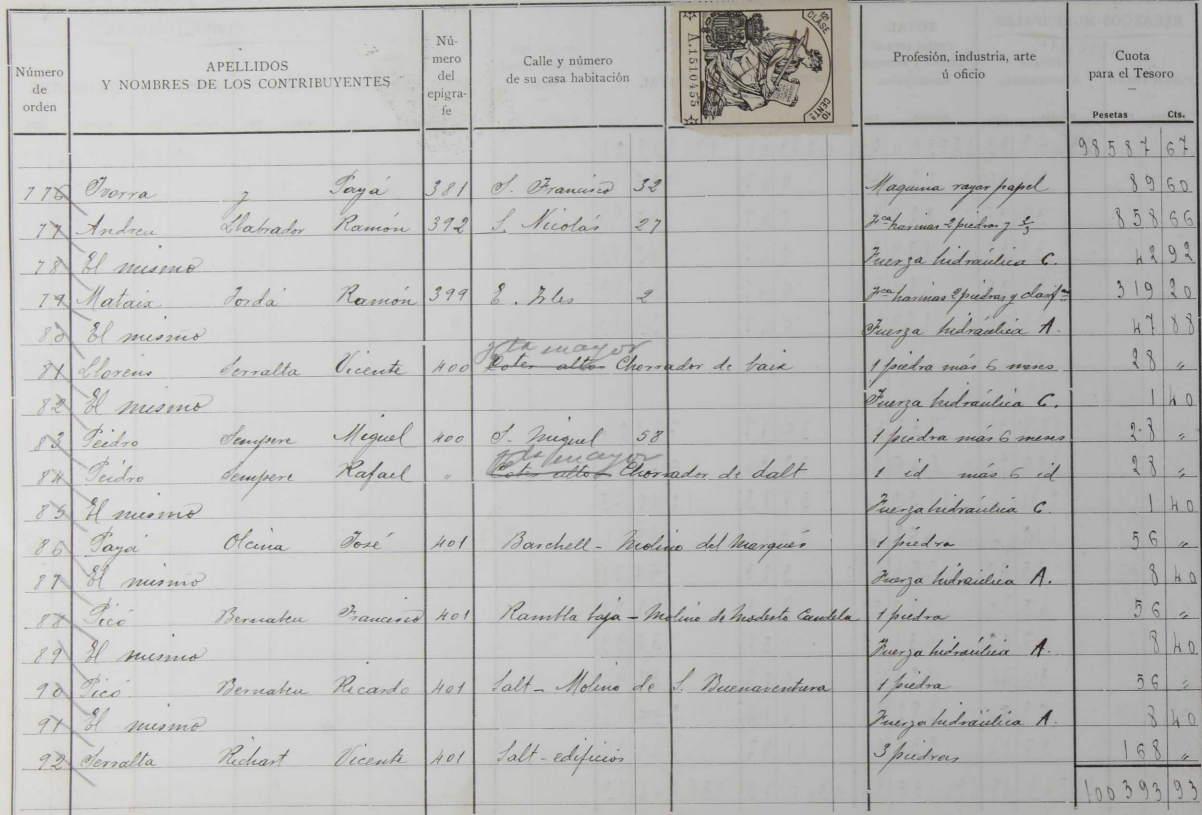 Número de orden
APELLIDOS Y NOMBRES DE LOS CONTRIBUYENTES
Nú-
mero
del
epígra-
fe
Calle y número
de su casa habitación
A.1510455
12ª CLASE
10 CENTs
Profesión, industria, arte
ú oficio
Cuota
para el Tesoro
Pesetas Cts.
98587 67
776 Ivorra y Payá 381 S. Francisco 32 Maquina rayar papel 89 60
77 Andreu Llabrador Ramón 392 S. Nicolás 27 fca harinas 2 piedras y 858 66
78 El mismo Fuerza hidráulica C. 42 92
79 Mataix Jordá Ramón 399 2 fca harinas 2 piedras y clasifon 319 20
80 El mismo Fuerza hidráulica A. 47 88
mayor
81 Llorens Serralta Vicente 400 Cotes altos Chorrador de baix 1 piedra más 6 meses 28 "
82 El mismo Fuerza hidráulica C. 1 40
83 Peidro Sempere Miguel 400 S. Miguel 58 1 piedra más 6 meses 28 "
mayor
84 Peidro Sempere Rafael " Cotes altos Chorrador de dalt 1 id más 6 id 28 "
85 El mismo Fuerza hidráulica C 1 40
86 Payá Olcina José 401 Barchell - Molino del Marqués 1 piedra 56 "
87 El mismo Fuerza hidráulica A. 8 40
88 Picó Bernabeu Francisco 401 Rambla baja - Molino de Modesto Candela 1 piedra 56 "
89 El mismo Fuerza hidráulica A. 8 40
90 Picó Bernabeu Ricardo 401 Salt - Molino de S. Buenaventura 1 piedra 56 "
91 El mismo Fuerza hidráulica A. 8 40
92 Serralta Richart Vicente 401 Salt - edificios 3 piedras 168 "
100393 93